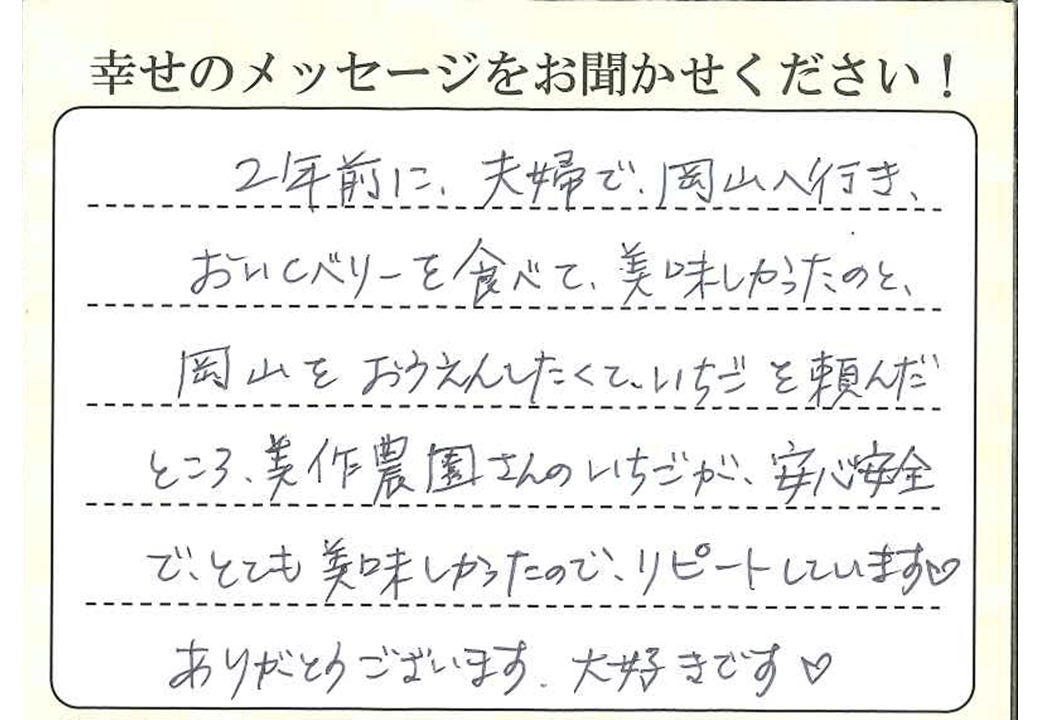 幸せのメッセージをお聞かせください！
2年前に、夫婦で、岡山へ行き、
おいCベリーを食べて、美味しかったのと、
岡山をおうえんしたくて、いちごを頼んだ
ところ、美作農園さんのいちごが、安心安全
で、とても美味しかったので、リピートしています♡
ありがとうございます。大好きです♡